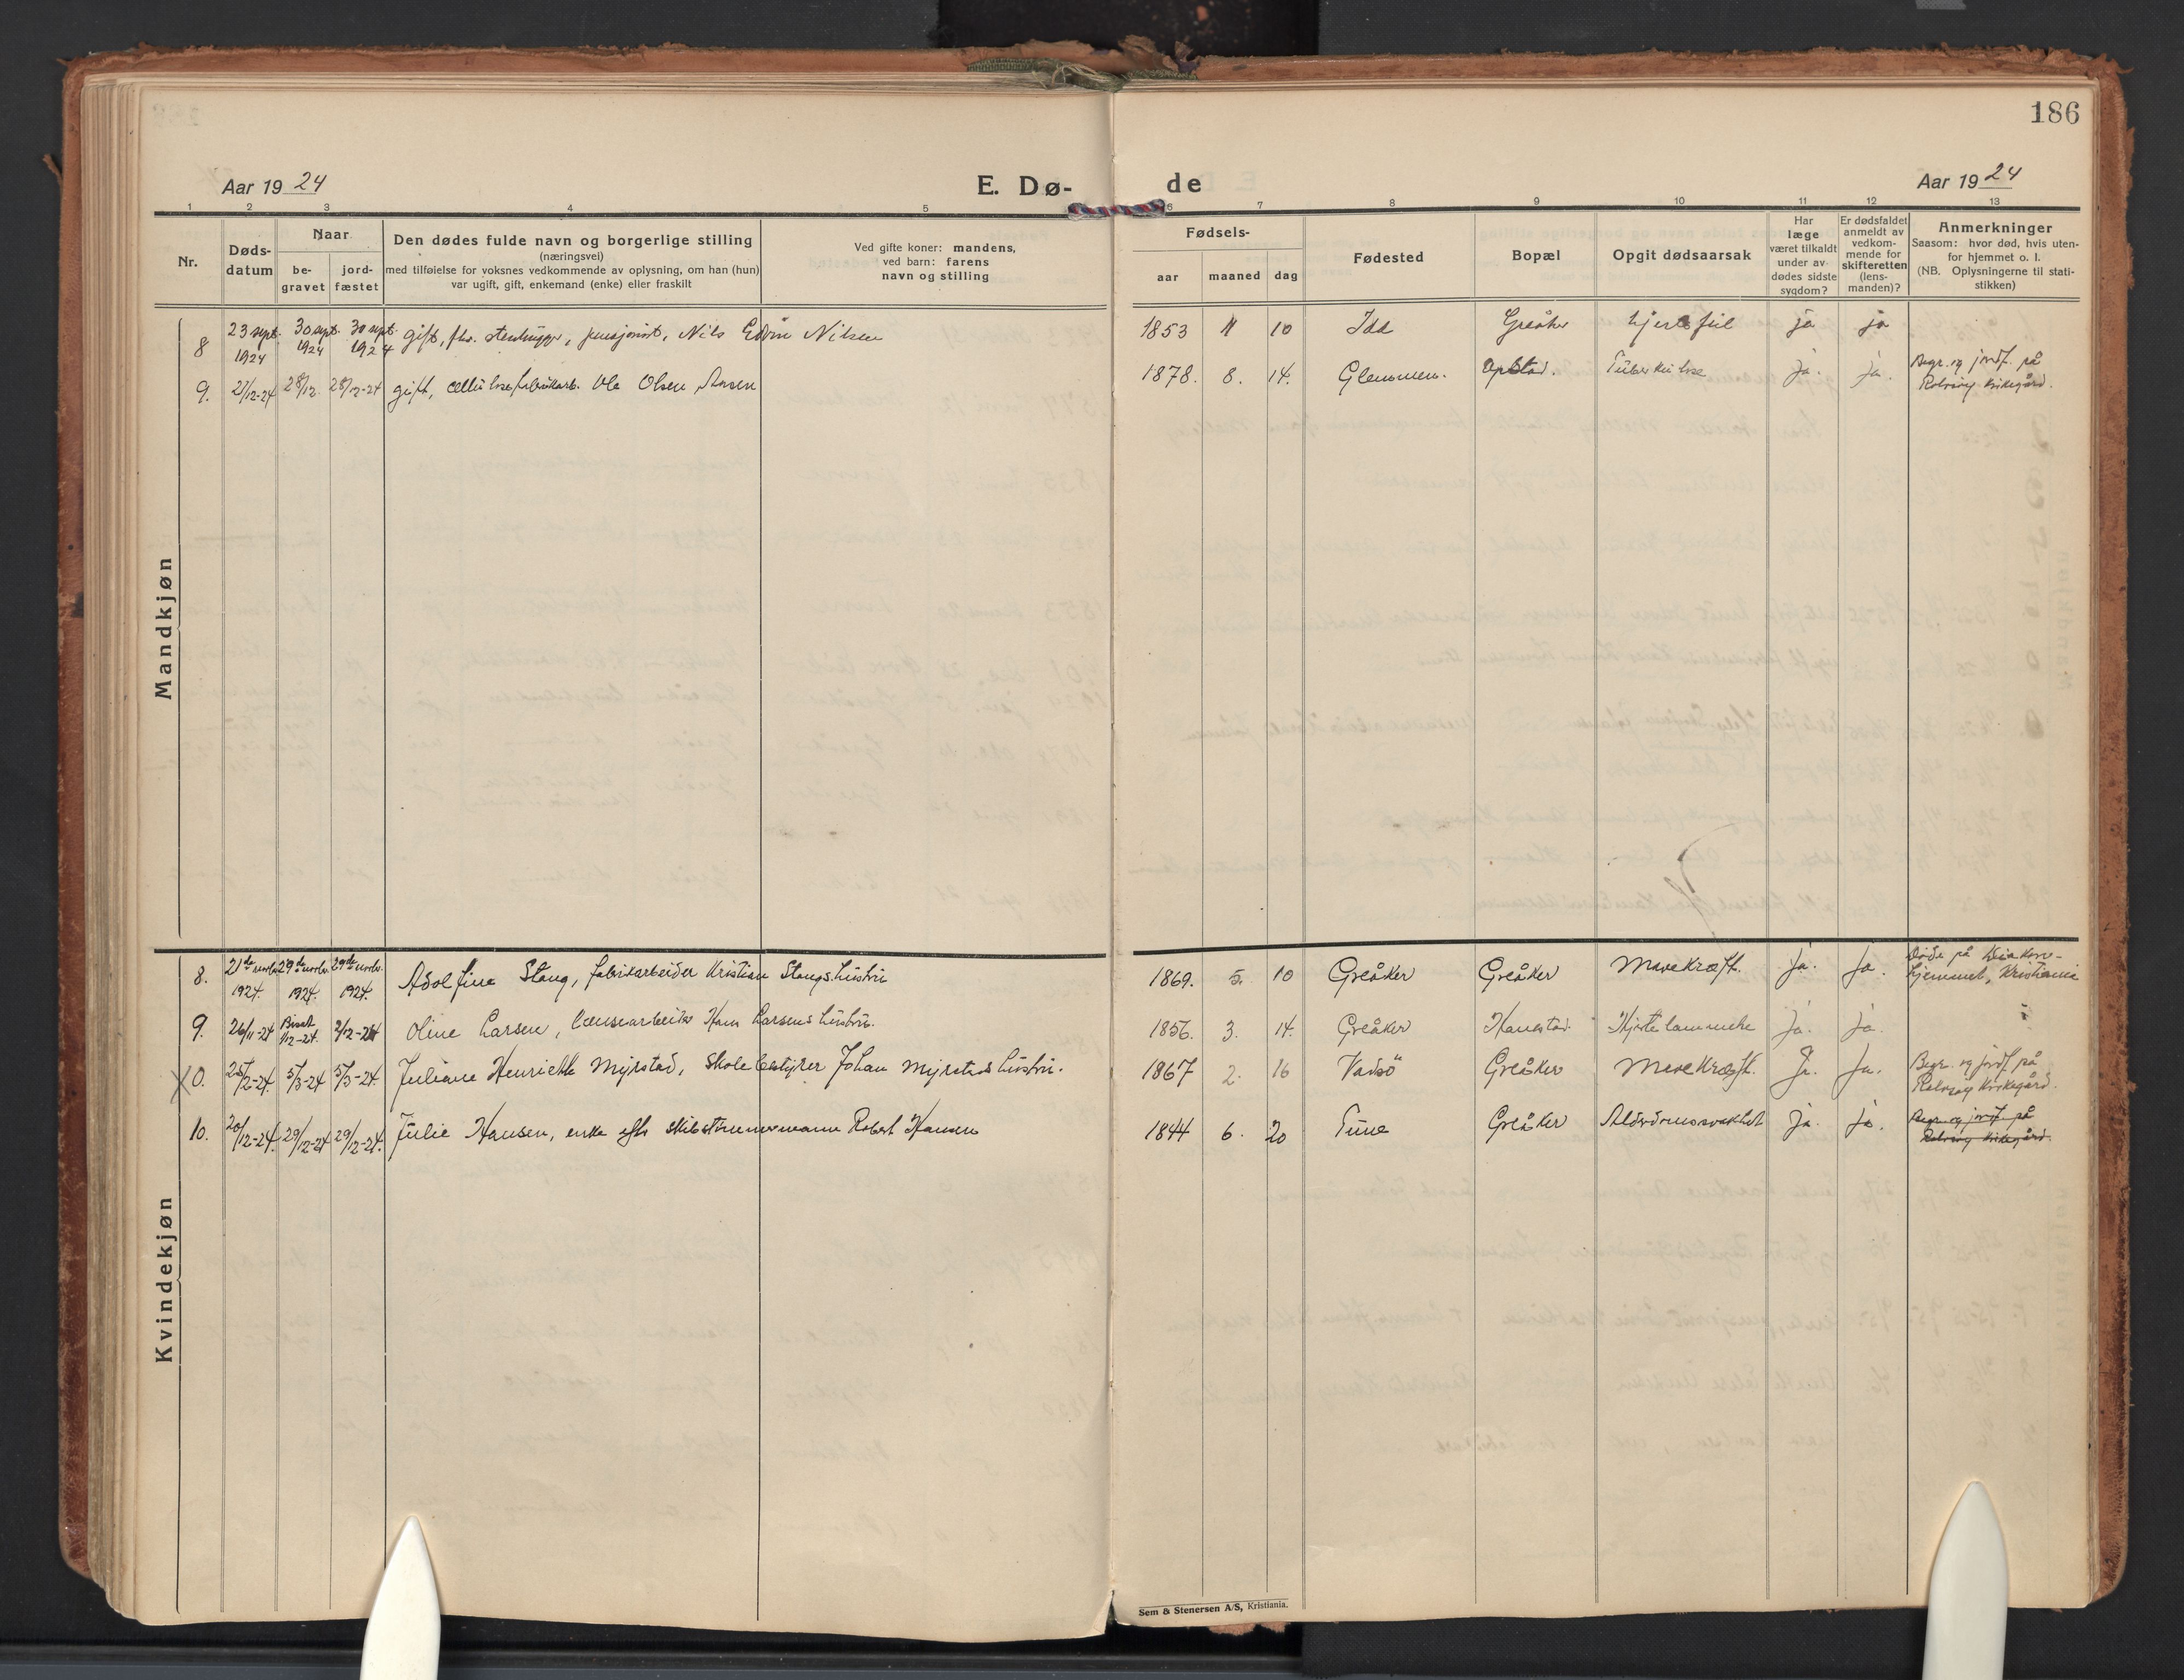 186
Aar 1924 E. Dø- de Aar 1924
1 2 3 4 5 6 7 8 9 10 11 12 13
Nr.
Døds-
datum
Naar
be-
gravet
jord-
fæstet
Den dødes fulde navn og borgerlige stilling
(næringsvei)
med tilføielse for voksnes vedkommende av oplysning, om han (hun)
var ugift, gift, enkemand (enke) eller fraskilt
Ved gifte koner: mandens,
ved barn: farens
navn og stilling
Fødsels-
aar maaned dag
Fødested
Bopæl
Opgit dødsaarsak
Har
læge
været tilkaldt
under av-
dødes sidste
sygdom?
Er dødsfaldet
anmeldt av
vedkom-
mende for
skifteretten
(lens-
manden)?
Anmerkninger
Saasom: hvor død, hvis uten-
for hjemmet o. l.
(NB. Oplysningerne til stati-
stikken)
Mandkjøn
8 23 sept. 1924 30 sept. 1924 30 sept. 1924 gift, fhv. stenhugger, pensjonist, Nils Edvin Nilsen 1853 11 10 Idd Greåker hjertefeil ja ja
9. 21/12-24 28/12. 28/12-24 gift, cellulosefabrikarb. Ole Olsen Aasen 1878. 8. 14. Glemmen. Opstad. Tuberkulose Ja. Ja. Begr. og jordf. på
Rolvsøy kirkegård.
Kvindekjøn
8. 21de novbr. 1924. 29de novbr. 1924. 29de novbr. 1924. Adolfine Stang, fabrikarbeider Kristian Stangs hustru 1869. 5. 10 Greåker Greåker Mavekræft. Ja. Ja. Døde på Diakon-
hjemmet, Kristiania
9. 26/11-24 Bisat 1/12-24. 2/12-24 Oline Larsen, lænsearbeider Hans Larsens hustru. 1856. 3. 14. Greåker Hanestad Hjertelammelse Ja. Ja.
X0. 25/2-24. 5/3-24 5/3-24. Juliane Henriette Myrstad, Skolebestyrer Johan Myrstads hustru. 1867 2. 16 Vadsö Greåker Mavekræft. Ja. Ja. Begr. og jordf. på
Rolvsøy kirkegård.
10. 20/12-24. 29/12-24 29/12-24. Julie Hansen, enke efter skibstømmermann Robert Hansen 1844 6. 20 Tune Greåker Alderdomssvakhet Ja. Ja. Begr. og jordf. på
Rolvsøy kirkegård.
Sem & Stenersen A/S, Kristiania.